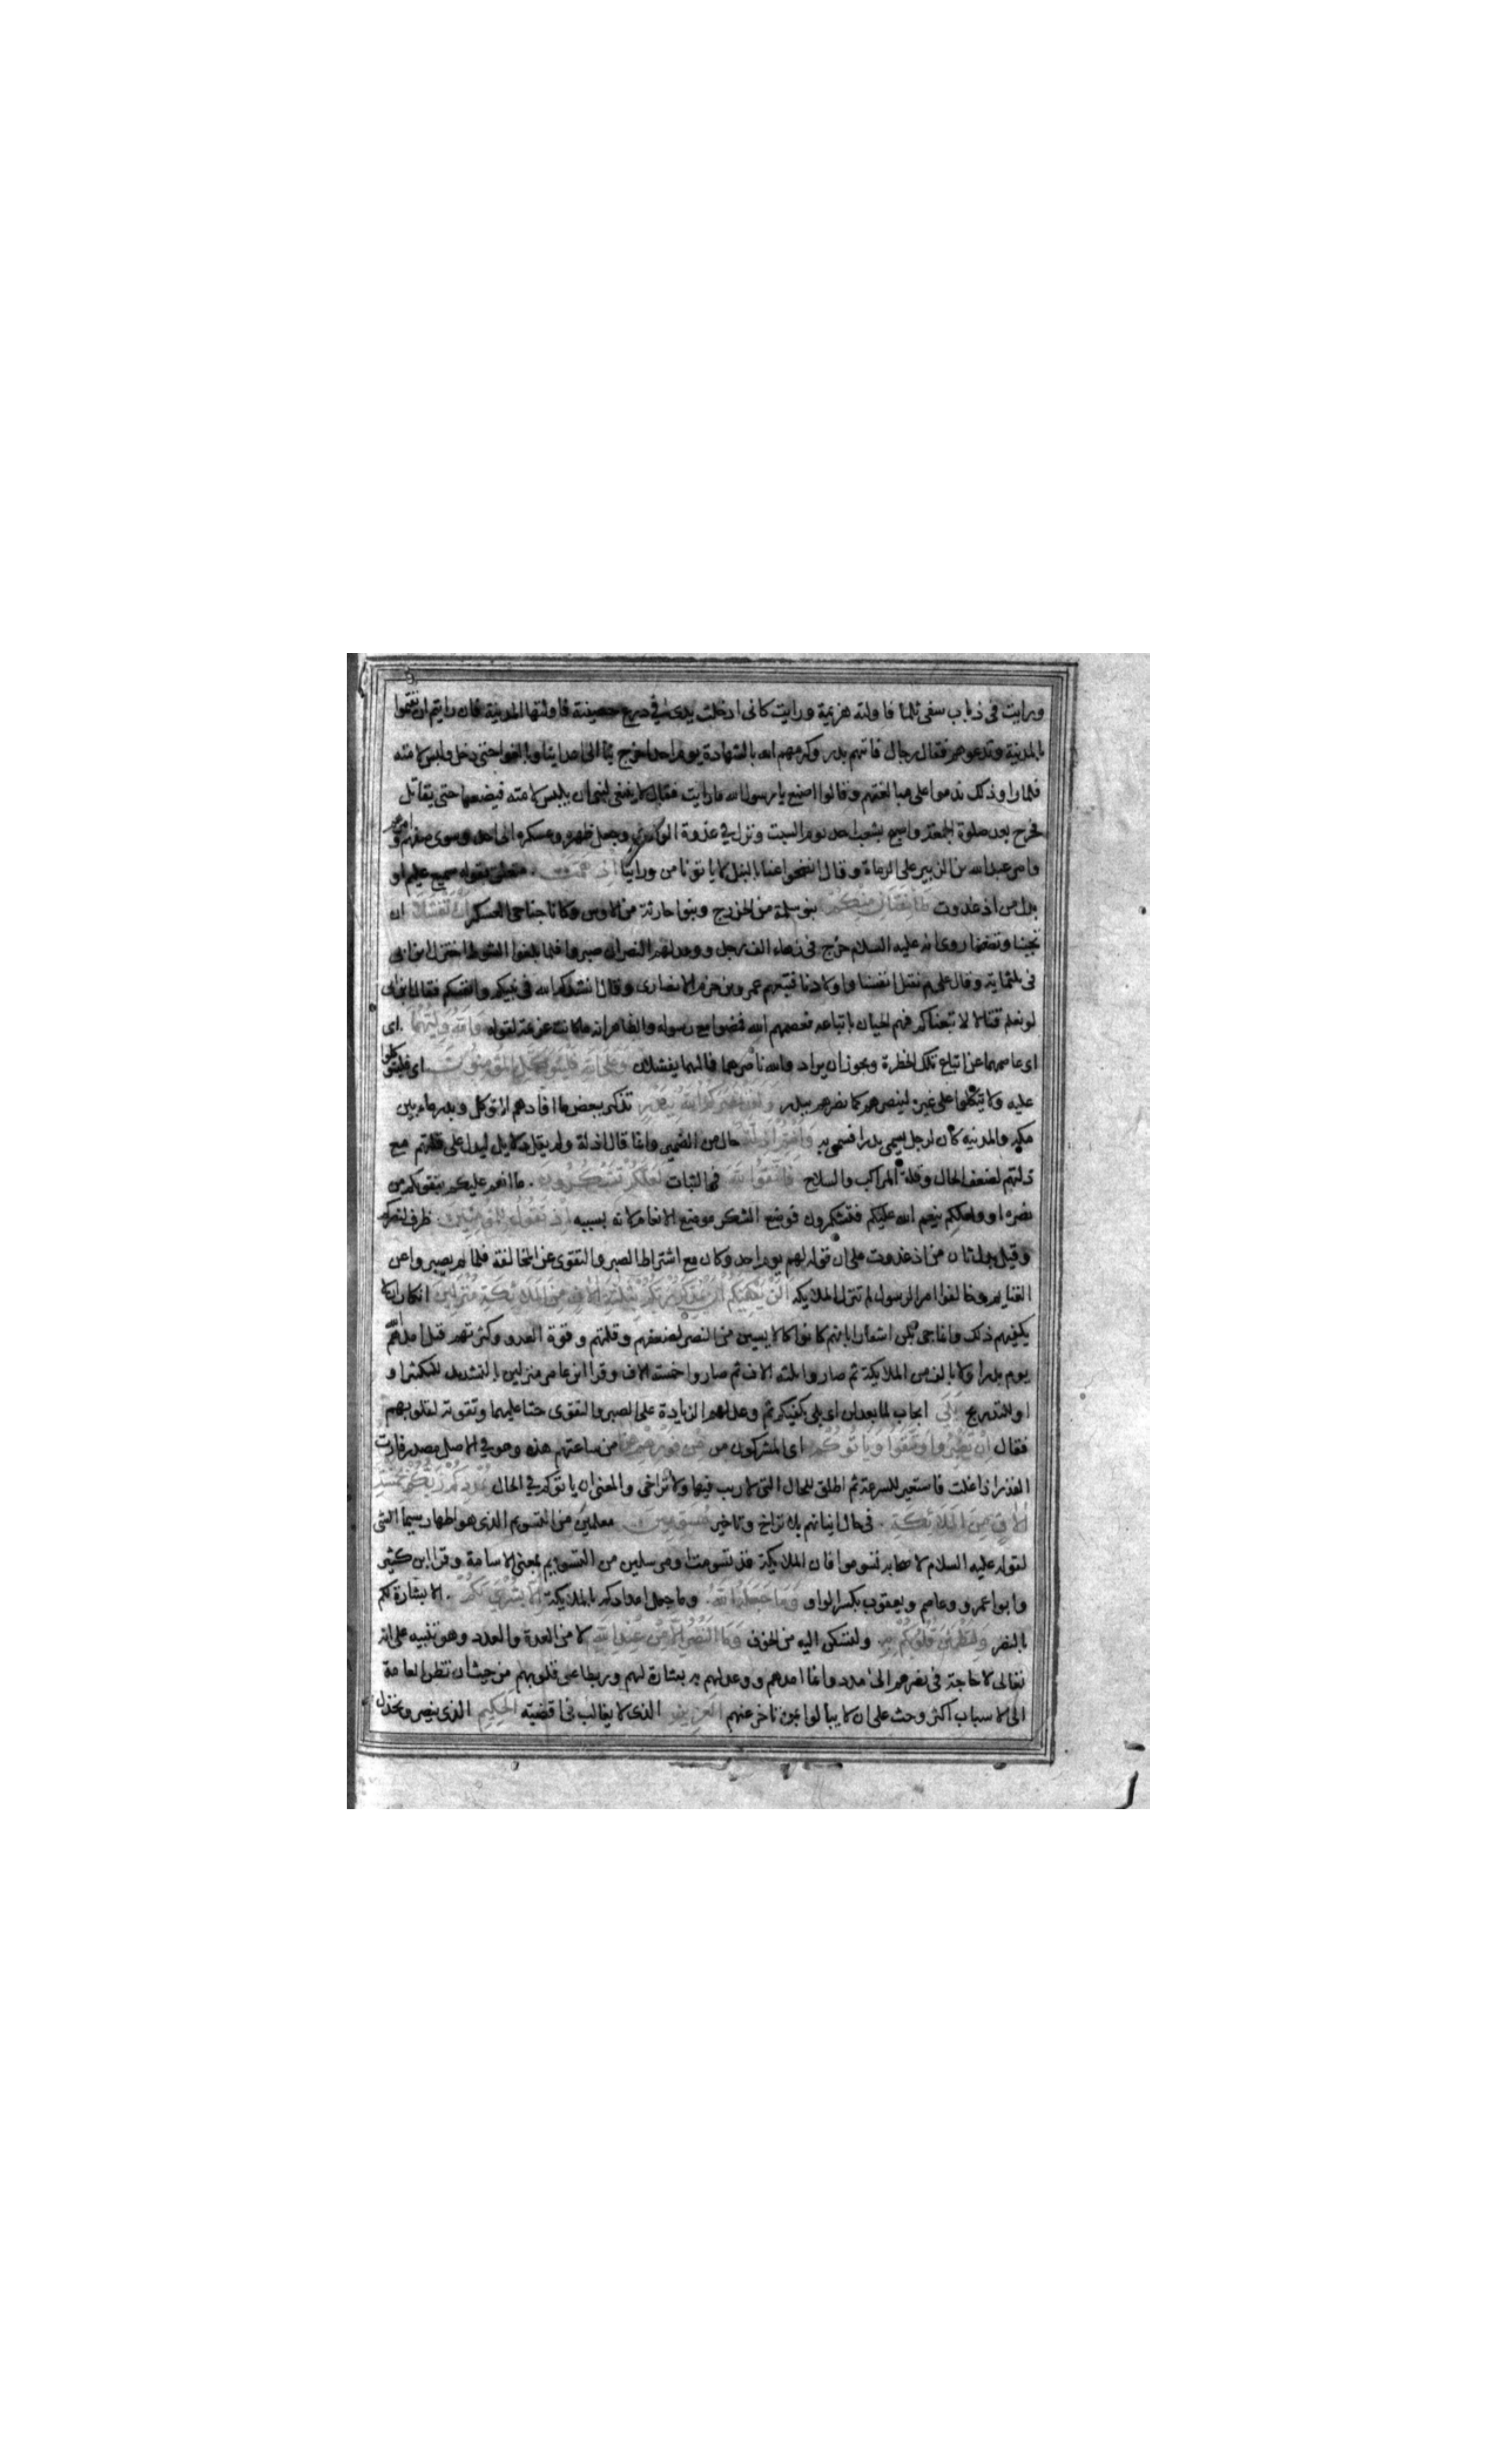 ورايت في ذباب سفى ثلما فاولته هزيمة ورايت كانى ادخلت يدى في درع حصينة فاولتها المدينة فان رايتم ان تقيموا
بالمدينة وتدعوهم فقال رجال فاتتهم بدر وكرمهم الله بالشهادة يوم احد اخرج بنا الى اعدائنا وبالغوا حتى دخل ولبس لامته
فلما راوا ذلك ندموا على مبالغتهم وقالوا اصنع يا رسول الله ما رايت فقال لا ينبغى لنبى ان يلبس لامته فيضعها حتى يقاتل
فخرج بعد صلوة الجمعة واصبح بشعب احد يوم السبت ونزل في عدوة الوادى وجعل ظهره وعسكره الى احد وسوى صفهم
وامر عبدالله بن الزبير على الرماة وقال انضحوا عنا بالنبل لا ياتونا من وراينا اذ همت متعلق بقوله سميع عليم او
بدل من اذ غدوت طايفتان منكم بنو سلمة من الخزرج وبنوا حارثة من الاوس وكانا جناحى العسكر ان تفشلا ان
تجبنا وتضعفا روى انه عليه السلام خرج فى زهاء الف رجل ووعد لهم النصر ان صبروا فلما بلغوا الشوط اختزل ابن ابى
فى ثلثماية وقال علام نقتل انفسنا واولادنا فتبعهم عمرو بن حزم الانصارى وقال انشدكم الله فى نبيكم وانفسكم فقال ابن ابى
لو نعلم قتالا لاتبعناكم فهم الحيان باتباعه فعصمهم الله فمضوا مع رسوله والظاهر انه ما كانت عزيمة لقوله والله وليهما اى
اى عاصمهما عن اتباع تلك الخطرة ويجوز ان يراد والله ناصرهما فما لهما يفشلان وعلى الله فليتوكل المؤمنون اى فليتوكلوا
عليه ولا يتكلوا على غيره لينصرهم كما نصرهم ببدر ولقد نصركم الله ببدر تذكير بعض ما افادهم التوكل وبدر ماء بين
مكه والمدينه كان لرجل يسمى بدرا فسمى به وانتم اذلة حال من الضمير وانما قال اذلة ولم يقل ذلايل ليدل على قلتهم مع
ذلتهم لضعف الحال وقلة المراكب والسلاح فاتقوا الله فى الثبات لعلكم تشكرون ما انعم عليكم بتقويكم من
نصره او ولعلكم ينعم الله عليكم فتشكرون فوضع الشكر موضع الانعام لانه بسببه اذ تقول للمؤمنين ظرف لنصركم
وقيل بدل ثان من اذ غدوت على ان قوله لهم يوم احد وكان مع اشتراط الصبر والتقوى عن المخالفة فلما لم يصبروا عن
الغنايم وخالفوا امر الرسول لم تنزل الملايكه الن يكفيكم ان يمدكم ربكم بثلثة الاف من الملائكة منزلين انكار ان لا
يكفيهم ذلك وانما جى بلن اشعارا بانهم كانوا كالايسين من النصر لضعفهم وقلتهم وقوة العدو وكثرتهم قيل امدهم
يوم بدر اولا بالف من الملايكة ثم صاروا ثلثه الاف ثم صاروا خمسة الاف وقرا ابن عامر منزلين بالتشديد للتكثير او
او للتدريج بلى ايجاب لما بعد لن اى بلى يكفيكم ثم وعد لهم الزيادة على الصبر والتقوى حثا عليهما وتقوية لقلوبهم
فقال ان تصبروا وتتقوا وياتوكم اى المشركون من من فورهم هذا من ساعتهم هذه وهو في الاصل مصدر فارت
القدر اذا غلت فاستعير للسرعة ثم اطلق للحال التى لا ريب فيها ولا تراخى والمعنى ان ياتوكم في الحال يمددكم ربكم بخمسة
الاف من الملائكة فى حال اتيانهم بلا تراخ وتاخير مسومين معلمين من التسويم الذى هو اظهار سيما الشى
لقوله عليه السلام لاصحابه تسوموا فان الملايكة قد تسومت او مرسلين من التسويم بمعنى الاسامة وقرا ابن كثير
وابوا عمرو وعاصم ويعقوب بكسر الواو وما جعله الله وما جعل امدادكم بالملايكة الا بشرى لكم الا بشارة لكم
بالنصر ولتطمئن قلوبكم به ولتسكن اليه من الخوف وما النصر الا من عند الله لا من العدة والعدد وهو تنبيه على انه
تعالى لا حاجة فى نصرهم الى مدد وانما امدهم ووعد لهم به بشارة لهم وربطا على قلوبهم من حيث ان نظر العامة
الى الاسباب اكثر وحث على ان لا يبالوا بمن تاخر عنهم العزيز الذى لا يغالب فى اقضيته الحكيم الذى ينصر ويخذل